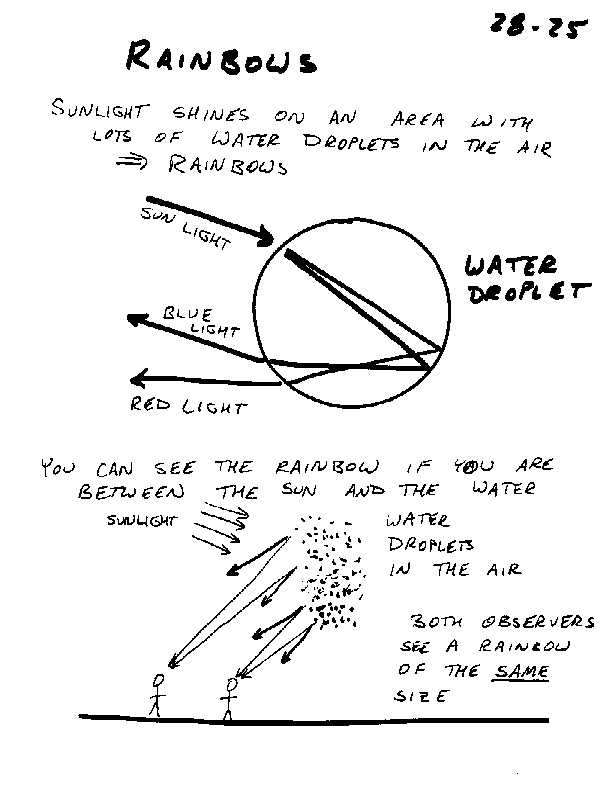 28-25
RAINBOWS
SUNLIGHT SHINES ON AN AREA WITH
LOTS OF WATER DROPLETS IN THE AIR
⇒ RAINBOWS
SUN LIGHT
WATER
DROPLET
BLUE
LIGHT
RED LIGHT
YOU CAN SEE THE RAINBOW IF YOU ARE
BETWEEN THE SUN AND THE WATER
SUNLIGHT
WATER
DROPLETS
IN THE AIR
BOTH OBSERVERS
SEE A RAINBOW
OF THE SAME
SIZE